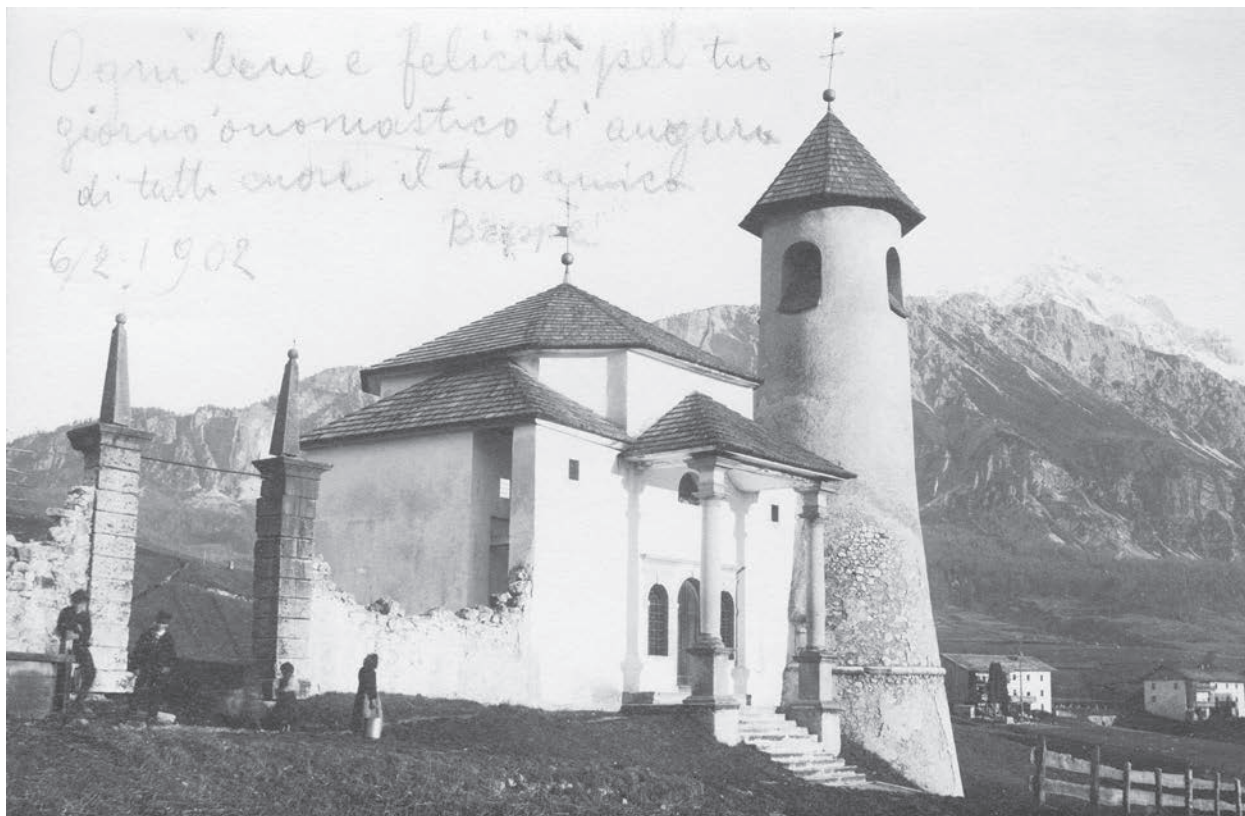 Ogni bene e felicità pel tuo
giorno onomastico ti augura
di tutto cuore il tuo amico
Beppe
6/2.1902